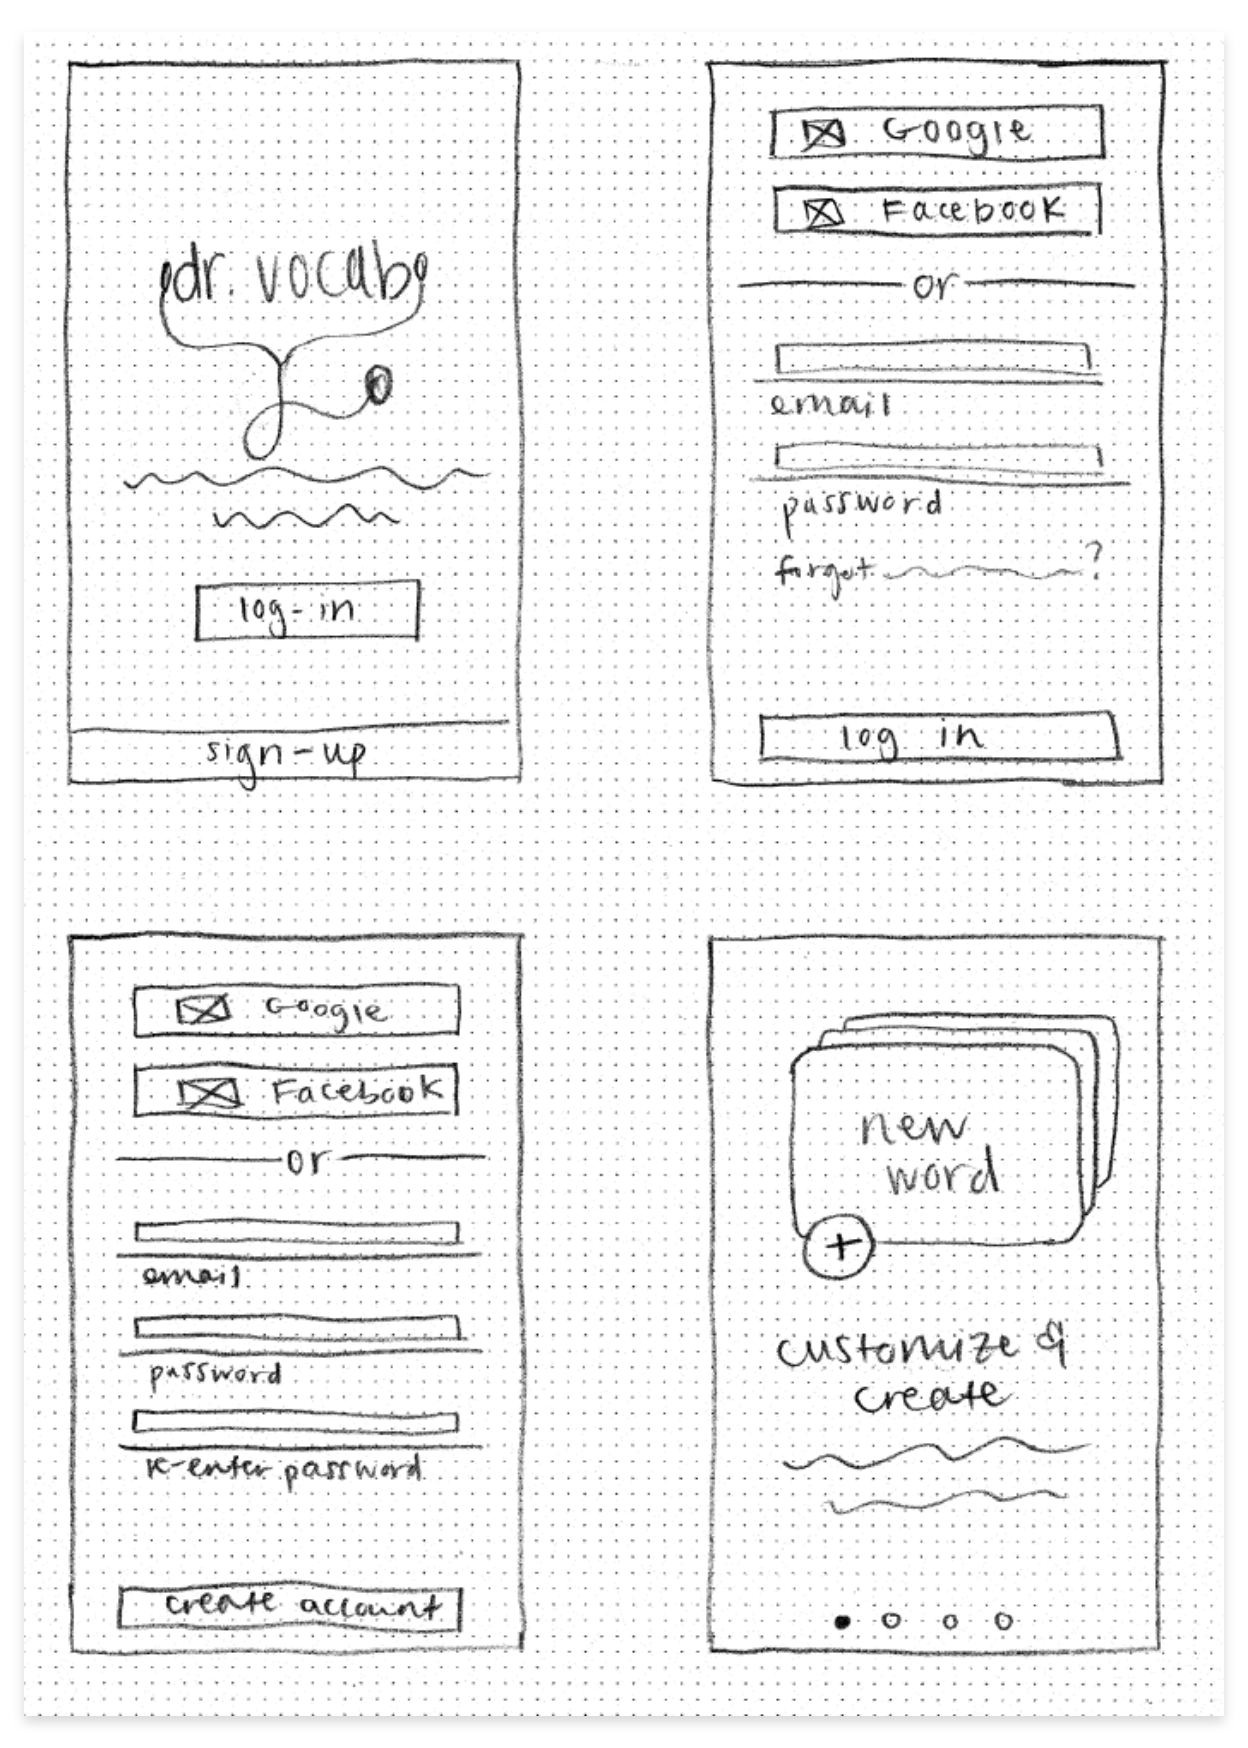 dr. vocab
log-in
sign-up
Google
Facebook
or
email
password
forgot ?
log in
Google
Facebook
or
email
password
re-enter password
create account
new
word
+
customize &
create